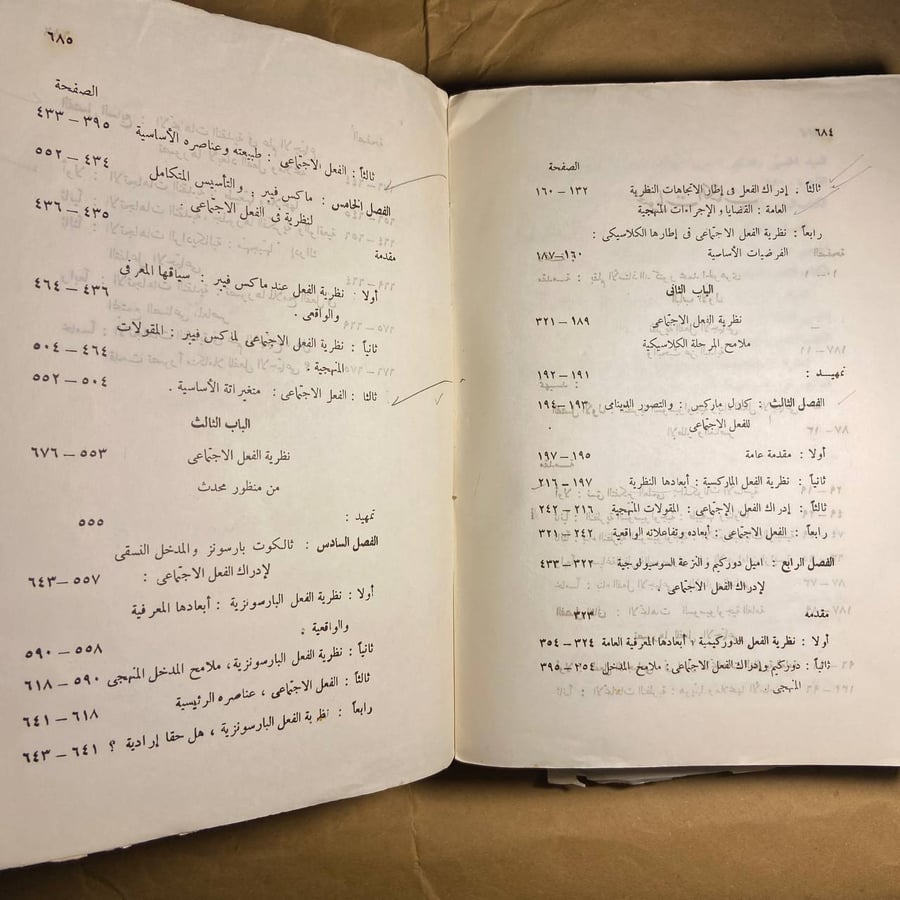 ٦٨٤
الصفحة
ثالثاً : إدراك الفعل فى إطار الاتجاهات النظرية ١٣٢ – ١٦٠
العامة : القضايا و الإجراءات المنهجية
رابعاً : نظرية الفعل الاجتماعى فى إطارها الكلاسيكى :
الفرضيات الأساسية ١٦٠ – ١٨٧
الباب الثانى
نظرية الفعل الاجتماعى ١٨٩ – ٣٢١
ملامح المرحلة الكلاسيكية
تمهيد : ١٩١ – ١٩٢
الفصل الثالث : كارل ماركس : والتصور الدينامى ١٩٣ – ١٩٤
للفعل الاجتماعى
أولا : مقدمة عامة ١٩٥ – ١٩٧
ثانياً : نظرية الفعل الماركسية : أبعادها النظرية ١٩٧ – ٢١٦
ثالثاً : إدراك الفعل الإجتماعى : المقولات المنهجية ٢١٦ – ٢٤٢
رابعاً : الفعل الاجتماعى : أبعاده وتفاعلاته الواقعية ٢٤٢ – ٣٢١
الفصل الرابع : اميل دوركيم والنزعة السوسيولوجية ٣٢٢ – ٤٣٣
لإدراك الفعل الاجتماعى :
مقدمه ٣٢٣
أولا : نظرية الفعل الدوركيمية : أبعادها المعرفية العامة ٣٢٤ – ٣٥٤
ثانياً : دوركيم وإدراك الفعل الاجتماعى : ملامح المدخل ٢٥٤ – ٣٩٥
المنهجى
٦٨٥
الصفحة
ثالثاً : الفعل الاجتماعى : طبيعته وعناصره الأساسية ٣٩٥ – ٤٣٣
الفصل الخامس : ماكس فيبر : والتأسيس المتكامل ٤٣٤ – ٥٥٢
لنظرية فى الفعل الاجتماعى .
مقدمة ٤٣٥ – ٤٣٦
أولا : نظرية الفعل عند ماكس فيبر : سياقها المعرفى
والواقعى . ٤٣٦ – ٤٦٤
ثانياً : نظرية الفعل الاجتماعى لماكس فيبر : المقولات
المنهجية ٤٦٤ – ٥٠٤
ثالثا : الفعل الاجتماعى : متغيراتة الأساسية . ٥٠٤ – ٥٥٢
الباب الثالث
نظرية الفعل الاجتماعى ٥٥٣ – ٦٧٦
من منظور محدث
تمهيد : ٥٥٥
الفصل السادس : تالكوت بارسونز والمدخل النسقى
لإدراك الفعل الاجتماعى : ٥٥٧ – ٦٤٣
أولا : نظرية الفعل البارسونزية : أبعادها المعرفية
والواقعية : ٥٥٨ – ٥٩٠
ثانياً : نظرية الفعل البارسونزية، ملامح المدخل المنهجى ٥٩٠ – ٦١٨
ثالثاً : الفعل الاجتماعى ، عناصره الرئيسية ٦١٨ – ٦٤١
رابعاً : نظرية الفعل البارسونزية ، هل حقا إرادية ؟ ٦٤١ – ٦٤٣